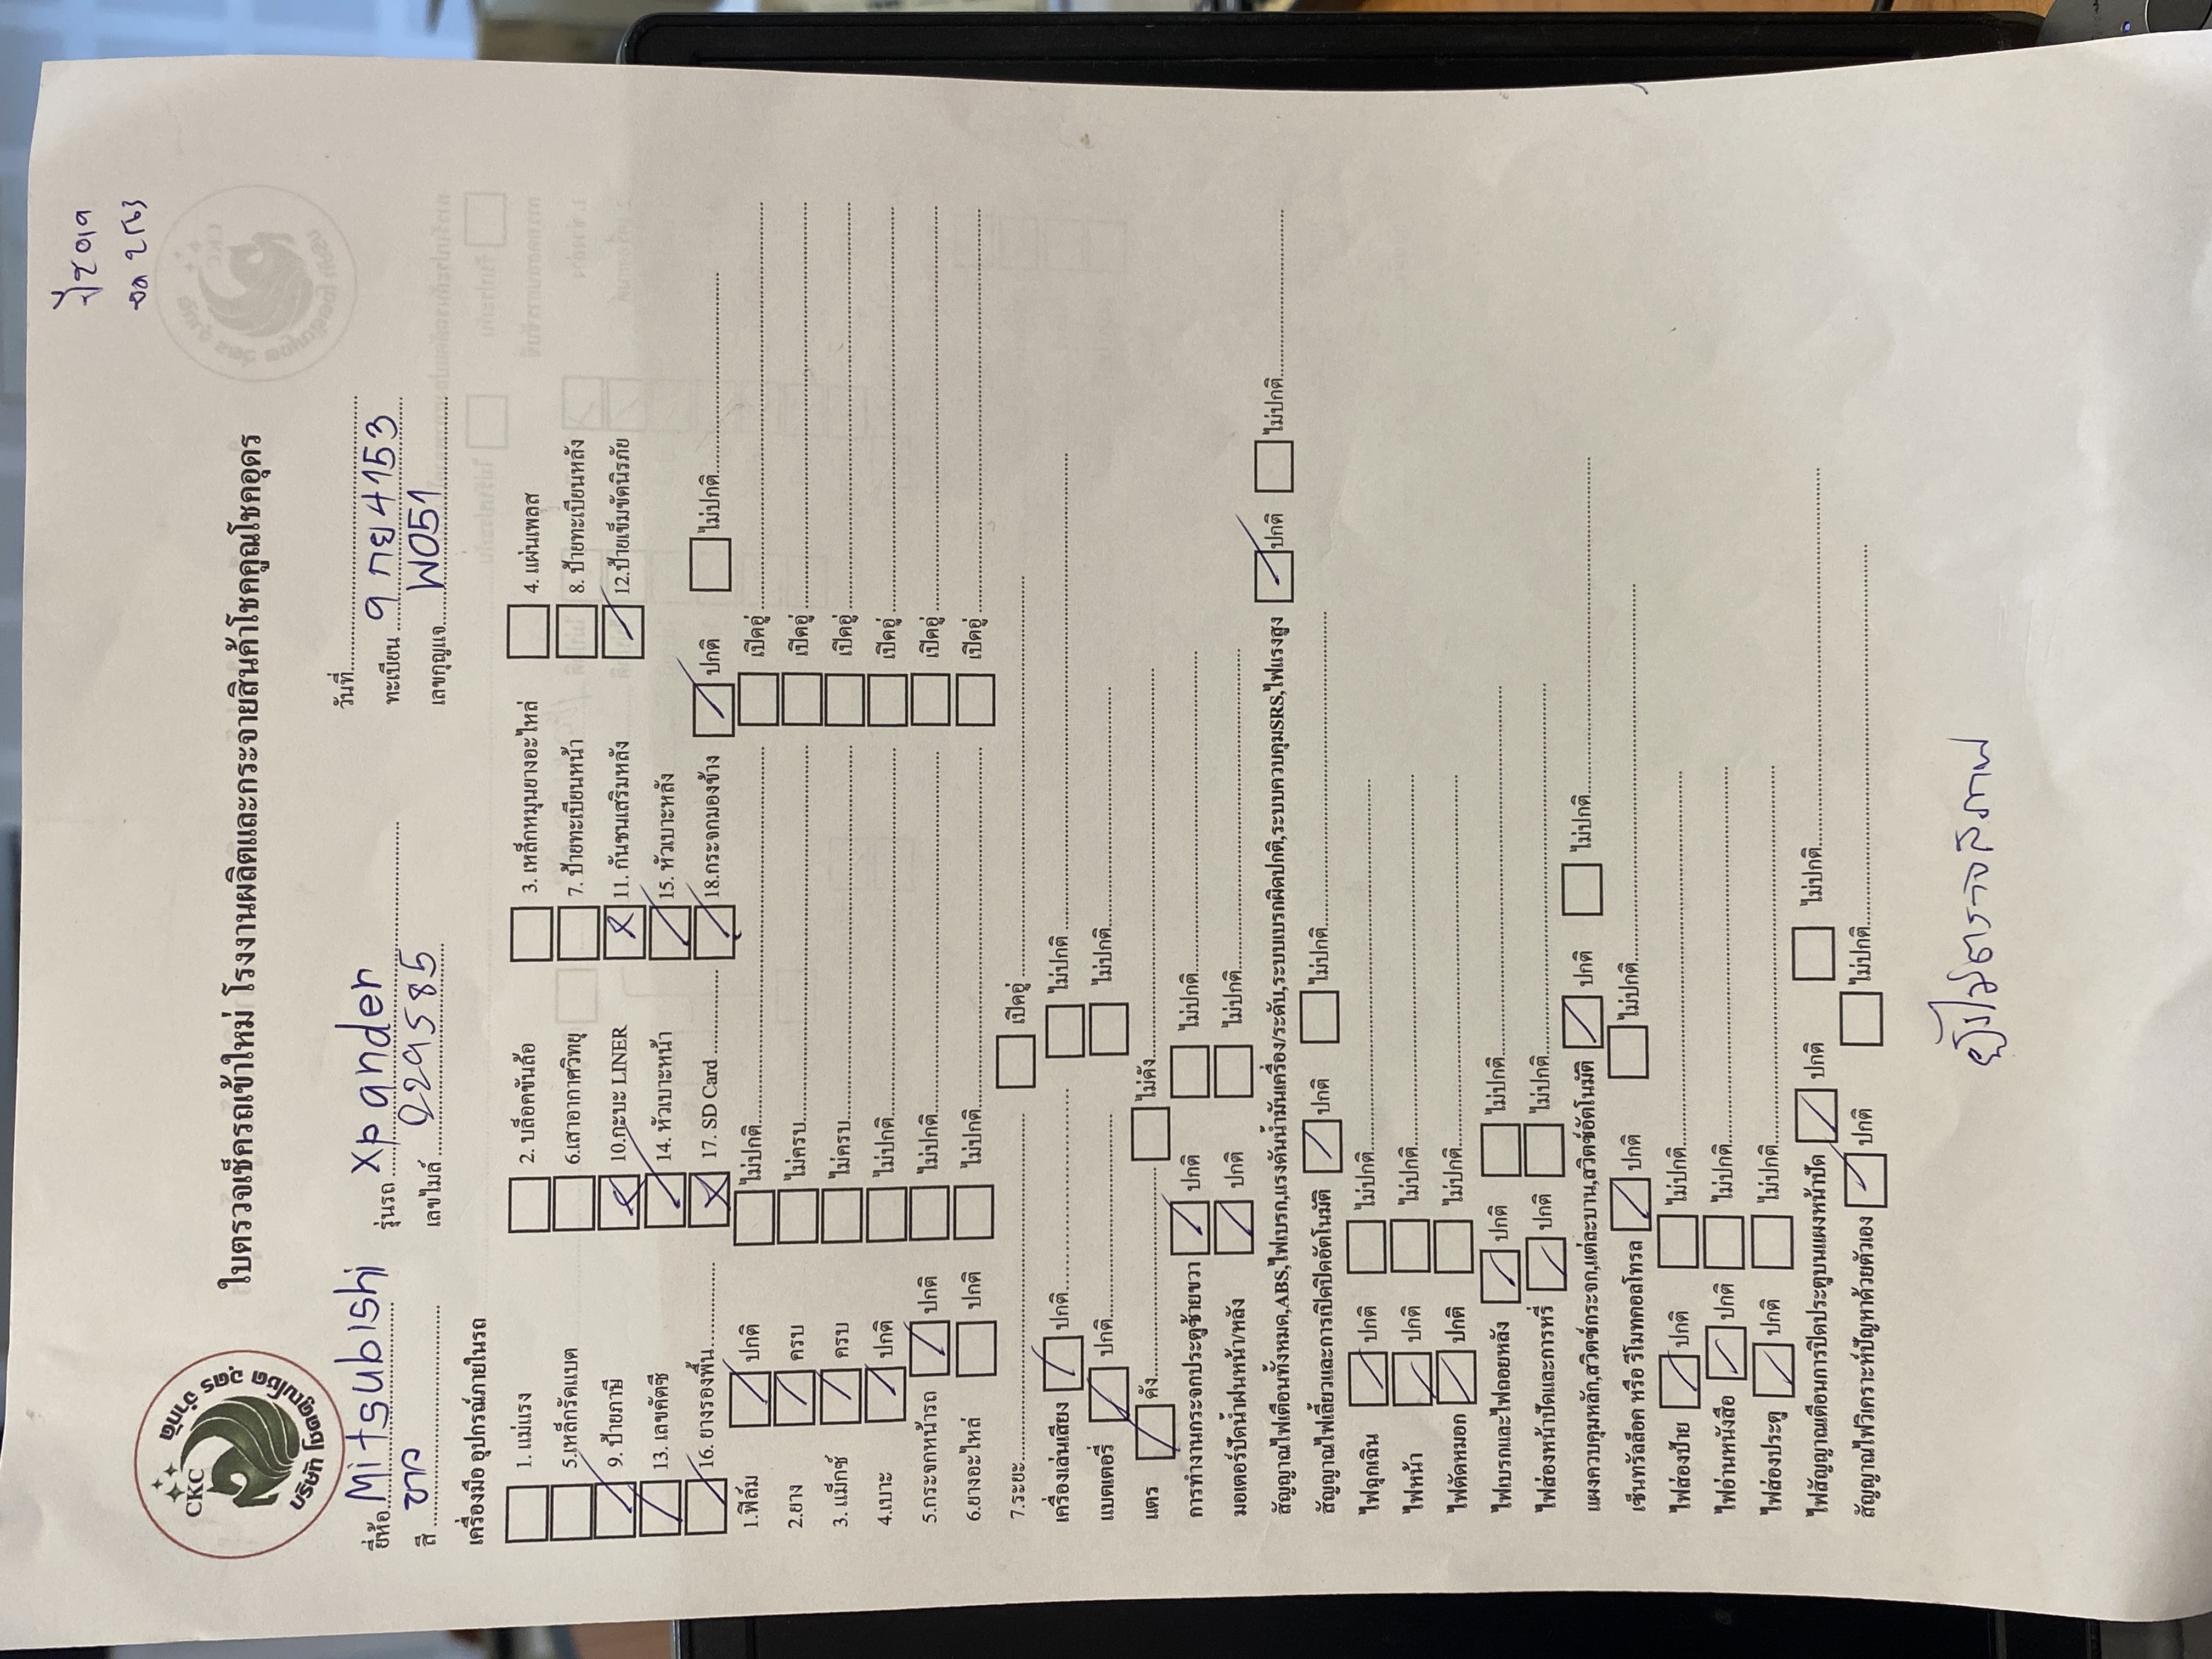 ปี 2019
จด 2563
CKC
บริษัท โชคคูณโชค อุดร จำกัด
ใบตรวจเช็ครถเข้าใหม่ โรงงานผลิตและกระจายสินค้าโชคคูณโชคอุดร
วันที่
ยี่ห้อ Mitsubishi รุ่นรถ Xpander ทะเบียน 9 กย 4153
สี ขาว เลขไมล์ 229585 เลขกุญแจ W051
เครื่องมือ อุปกรณ์ภายในรถ
1. แม่แรง 2. บล็อคขันล้อ 3. เหล็กหมุนยางอะไหล่ 4. แผ่นเพลส
5.เหล็กรัดแบต 6.เสาอากาศวิทยุ 7. ป้ายทะเบียนหน้า 8. ป้ายทะเบียนหลัง
9. ป้ายภาษี 10.กะบะ LINER 11. กันชนเสริมหลัง 12.ป้ายเข็มขัดนิรภัย
13. เลขคัคซี 14. หัวเบาะหน้า 15. หัวเบาะหลัง
16. ยางรองพื้น 17. SD Card 18.กระจกมองข้าง ปกติ ไม่ปกติ
1.ฟิล์ม ปกติ ไม่ปกติ เปิดอู่
2.ยาง ครบ ไม่ครบ เปิดอู่
3. แม็กซ์ ครบ ไม่ครบ เปิดอู่
4.เบาะ ปกติ ไม่ปกติ เปิดอู่
5.กระจกหน้ารถ ปกติ ไม่ปกติ เปิดอู่
6.ยางอะไหล่ ปกติ ไม่ปกติ เปิดอู่
7.ระยะ เปิดอู่
เครื่องเล่นเสียง ปกติ ไม่ปกติ
แบตเตอรี่ ปกติ ไม่ปกติ
แตร ดัง ไม่ดัง
การทำงานกระจกประตูซ้ายขวา ปกติ ไม่ปกติ
มอเตอร์ปัดน้ำฝนหน้า/หลัง ปกติ ไม่ปกติ
สัญญาณไฟเตือนทั้งหมด,ABS,ไฟเบรก,แรงดันน้ำมันเครื่อง/ระดับ,ระบบเบรกผิดปกติ,ระบบควบคุมSRS,ไฟแรงสูง ปกติ ไม่ปกติ
สัญญาณไฟเลี้ยวและการเปิดปิดอัตโนมัติ ปกติ ไม่ปกติ
ไฟฉุกเฉิน ปกติ ไม่ปกติ
ไฟหน้า ปกติ ไม่ปกติ
ไฟตัดหมอก ปกติ ไม่ปกติ
ไฟเบรกและไฟถอยหลัง ปกติ ไม่ปกติ
ไฟส่องหน้าปัดและการหรี่ ปกติ ไม่ปกติ
แผงควบคุมหลัก,สวิตซ์กระจก,แต่ละบาน,สวิตช์อัตโนมัติ ปกติ ไม่ปกติ
เซ็นทรัลล็อค หรือ รีโมทคอลโทรล ปกติ ไม่ปกติ
ไฟส่องป้าย ปกติ ไม่ปกติ
ไฟอ่านหนังสือ ปกติ ไม่ปกติ
ไฟส่องประตู ปกติ ไม่ปกติ
ไฟสัญญาณเตือนการปิดประตูบนแผงหน้าปัด ปกติ ไม่ปกติ
สัญญาณไฟวิเคราะห์ปัญหาด้วยตัวเอง ปกติ ไม่ปกติ
ยังไม่ตรวจสภาพ